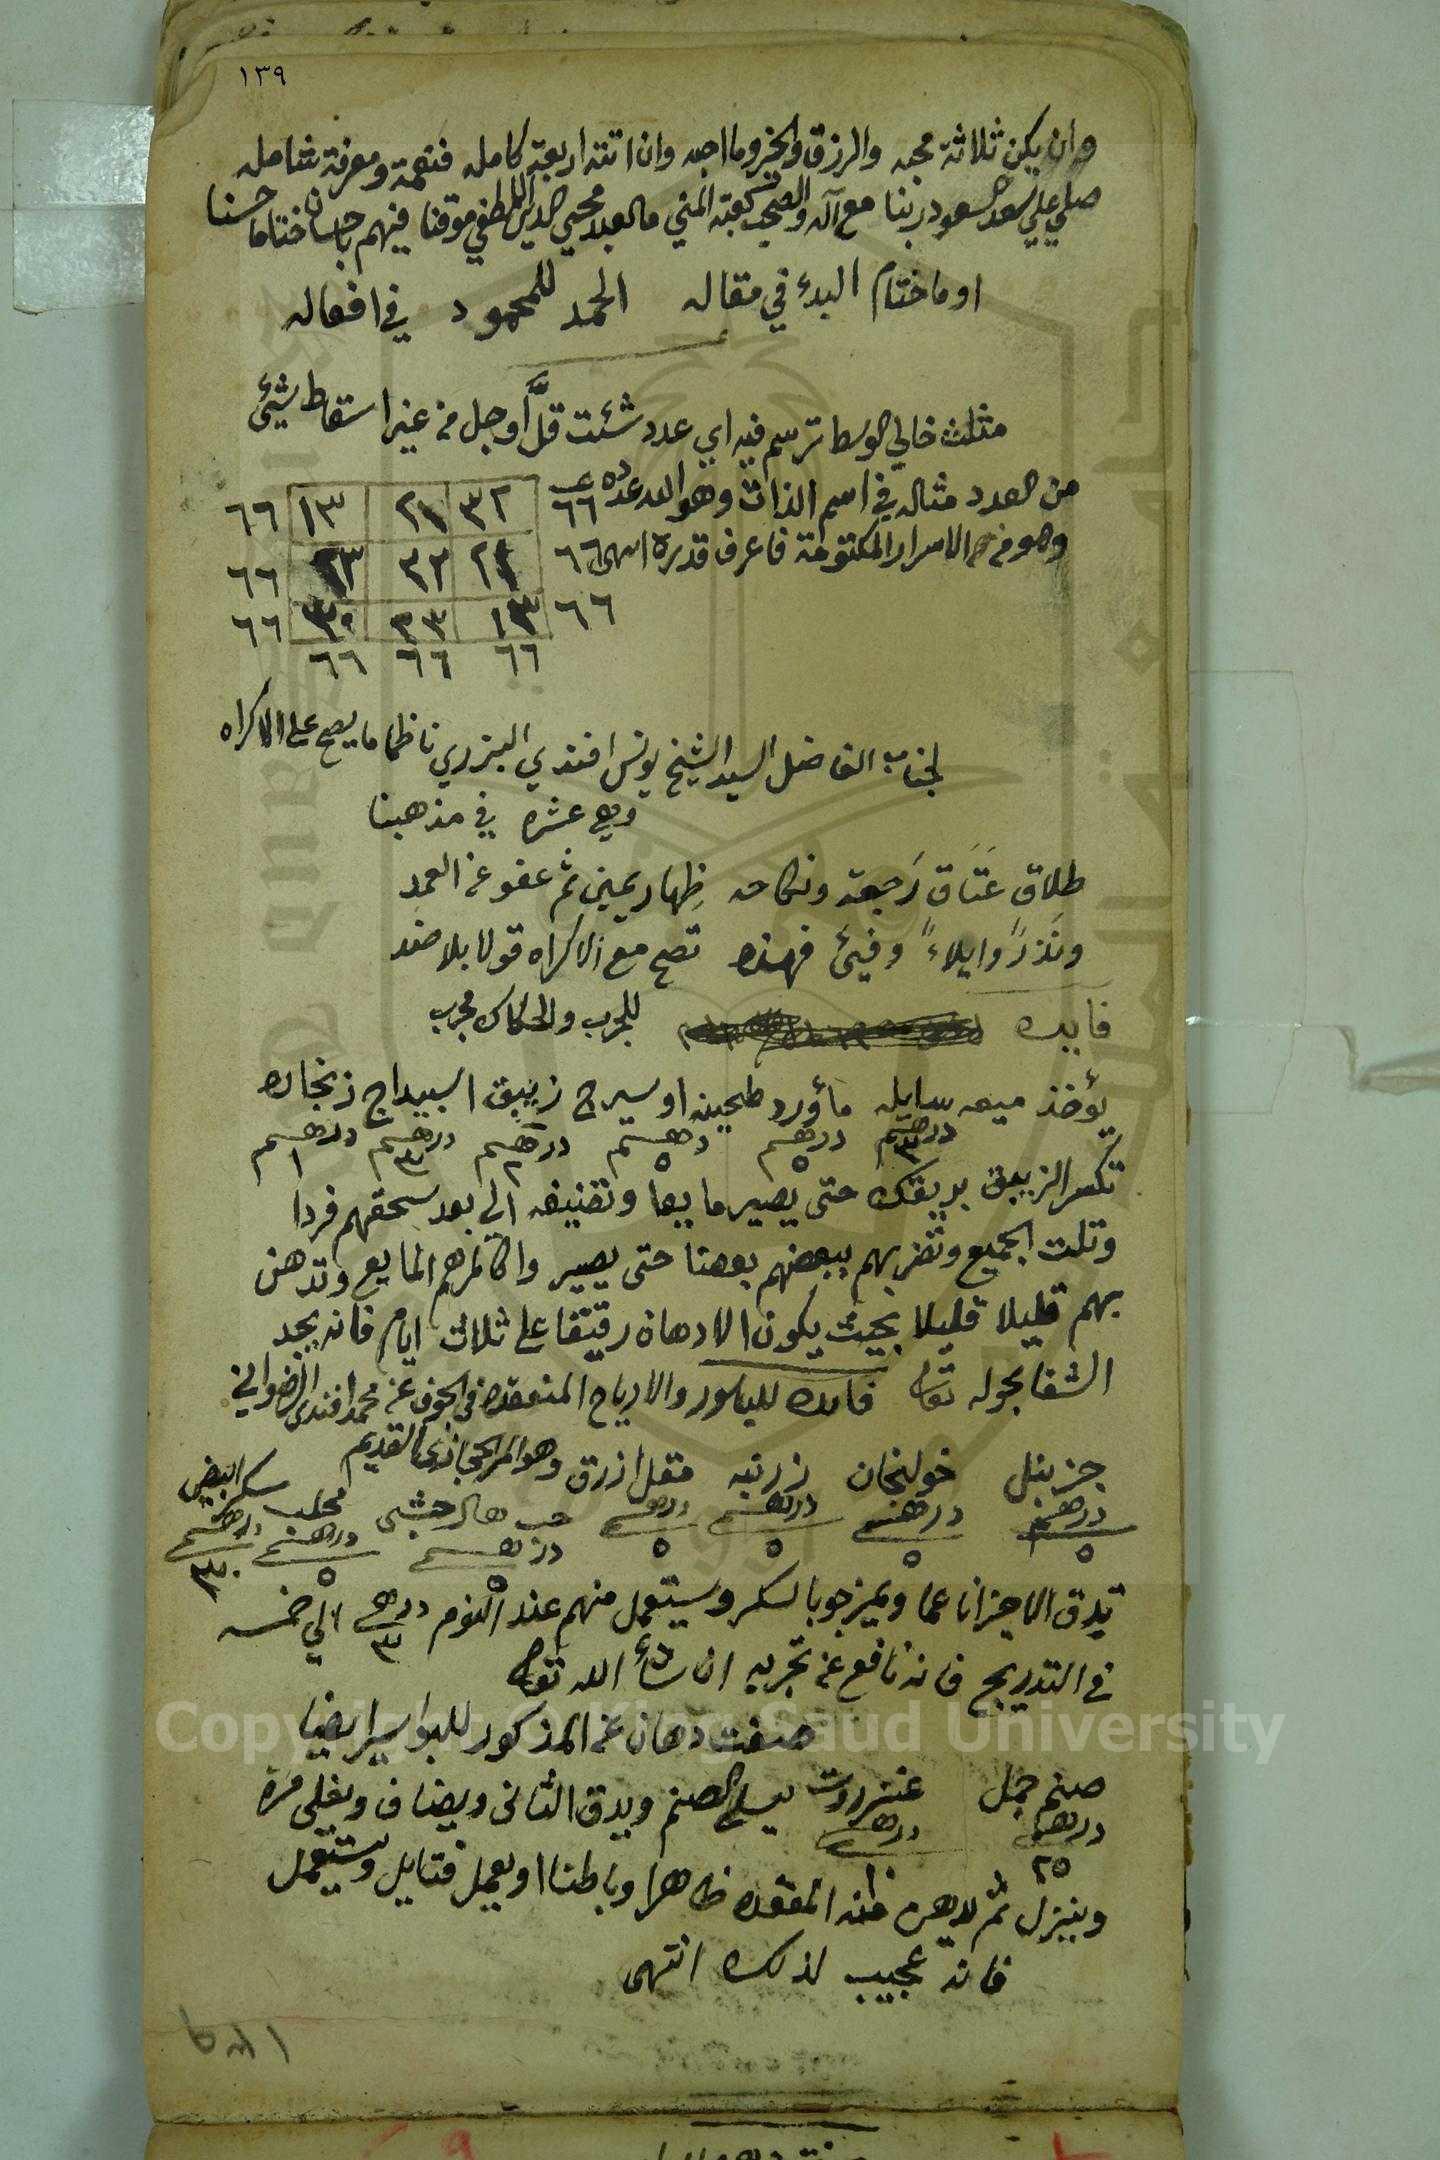 ١٣٩
وان يكن ثلاثة محبه والرزق والخير وما احبه وان اتتت اربعة كامله فنعمة ومعرفة شامله
صلي علي سعد السعود ربنا مع آله والصحب كعبة المني ما العبد محيي الدين اللطفي موقنا فيهم باحسان ختاما حسنا
او ما ختام البدء في مقاله الحمد للمحمود في افعاله
مثلث خالي الوسط ترسم فيه اي عدد شئت قلَّ أو جل من غير اسقاط شيئ
من العدد مثاله في اسم الذات وهو الله عدده ٦٦
وهو من الاسرار المكتومة فاعرف قدره انتهى
٣٢ ٢١ ١٣ ٦٦
٦٦ ٢٢ ٦٦
٦٦ ٣٣ ٦٦
٦٦ ٦٦ ٦٦
لجناب الفاضل السيد الشيخ يونس افندي البزري ناظما ما يصح على الاكراه
وهي عشره في مذهبنا
طلاق عَتَاق رَجعة ونكاحه ظِهار يمين ثم عفو عن العمدِ
ونَذرٌ وايلاءً وفيئ فهذه تصح مع الاكراه قولا بلا ضد
فايده للجرب والحكاك مجرب
يؤخذ ميعه سايله مأورد طحينه او سيرج زيبق اسبيداج زنجاره
درهم ٣ درهم ٥ درهم ٥ درهم ٢ درهم ٣ درهم ١
تكسر الزيبق بريقك حتى يصير مايعا وتضيفه الي بعد سحقهم فردا
وتلت الجميع وتضربهم ببعضهم بعضا حتى يصير واكالمرهم المايع وتدهن
بهم قليلا قليلا بحيث يكون الادهان رقيقا على ثلاث ايام فانه يجد
الشفا بحوله تعالى فايده للباسور والارياح المنعقده في الجوف عن محمد افندي الرضواني
جزبنل خولنجان زرنبه مقل ازرق وهو المر الحجازي القديم
حب هال حبشي محلب سكر ابيض
درهم ٥ درهم ٥ درهم ٥ درهم ٥ درهم ٥ درهم ٥ درهم ٣٠
تدق الاجزا ناعما ويمزجو بالسكر وسيتعمل منهم عند النوم درهم ٣ الي خمسه
في التدريج فانه نافع عن تجربه ان شأ الله تعالى
صفت دهان عن المذكور للبواسير ايضا
صنم جمل عنزروت يسلي الصنم ويدق الثانى ويضاف ويغلى مرة
درهم ٢٥ درهم ١٠
وينزل ثم يدهن منه المقعده ظاهرا وباطنا او يعمل فتايل وستيعمل
فانه عجيب لذلك انتهى
Copyright © King Saud University